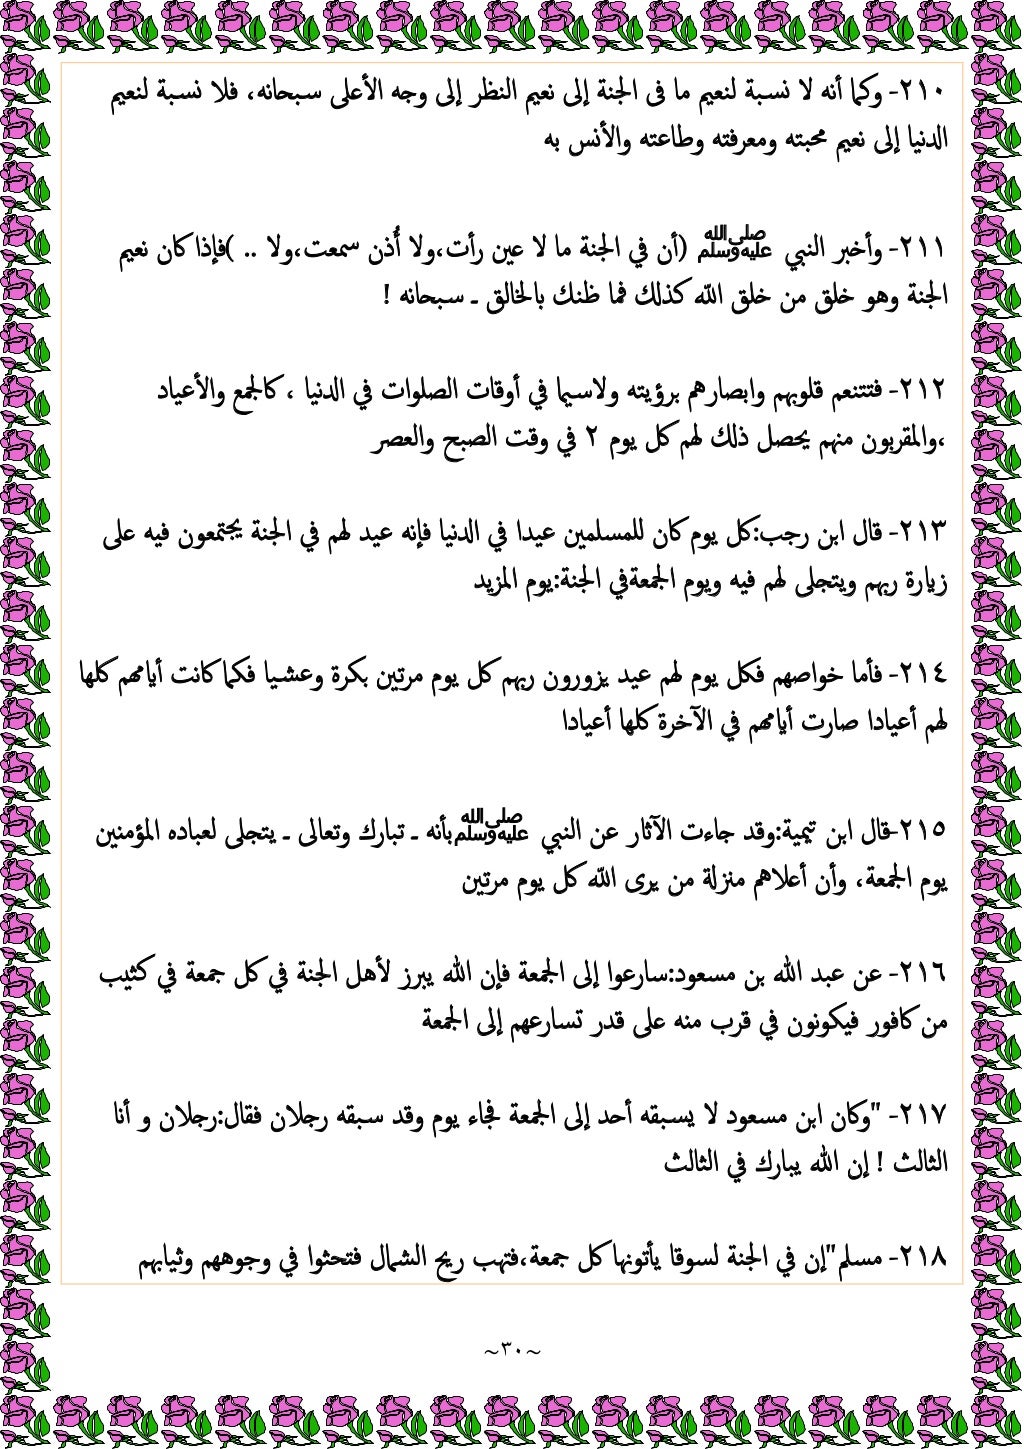 ٢١٠- وكما أنه لا نسبة لنعيم ما فى الجنة إلى نعيم النظر إلى وجه الأعلى سبحانه، فلا نسبة لنعيم
الدنيا إلى نعيم محبته ومعرفته وطاعته والأنس به
٢١١- وأخبر النبي ﷺ (أن في الجنة ما لا عين رأت،ولا أُذن سمعت،ولا .. )فإذا كان نعيم
الجنة وهو خلق من خلق الله كذلك فما ظنك بالخالق ـ سبحانه !
٢١٢- فتتنعم قلوبهم وابصارهم برؤيته ولاسيما في أوقات الصلوات في الدنيا ، كالجمع والأعياد
،والمقربون منهم يحصل ذلك لهم كل يوم ٢ في وقت الصبح والعصر
٢١٣- قال ابن رجب:كل يوم كان للمسلمين عيدا في الدنيا فإنه عيد لهم في الجنة يجتمعون فيه على
زيارة ربهم ويتجلى لهم فيه ويوم الجمعةفي الجنة:يوم المزيد
٢١٤- فأما خواصهم فكل يوم لهم عيد يزورون ربهم كل يوم مرتين بكرة وعشيا فكما كانت أيامهم كلها
لهم أعيادا صارت أيامهم في الآخرة كلها أعيادا
٢١٥-قال ابن تيمية:وقد جاءت الآثار عن النبي ﷺبأنه ـ تبارك وتعالى ـ يتجلى لعباده المؤمنين
يوم الجمعة، وأن أعلاهم منزلة من يرى الله كل يوم مرتين
٢١٦- عن عبد الله بن مسعود:سارعوا إلى الجمعة فإن الله يبرز لأهل الجنة في كل جمعة في كثيب
من كافور فيكونون في قرب منه على قدر تسارعهم إلى الجمعة
٢١٧- "وكان ابن مسعود لا يسبقه أحد إلى الجمعة فجاء يوم وقد سبقه رجلان فقال:رجلان و أنا
الثالث ! إن الله يبارك في الثالث
٢١٨- مسلم"إن في الجنة لسوقا يأتونها كل جمعة،فتهب ريح الشمال فتحثوا في وجوههم وثيابهم
~٣٠~